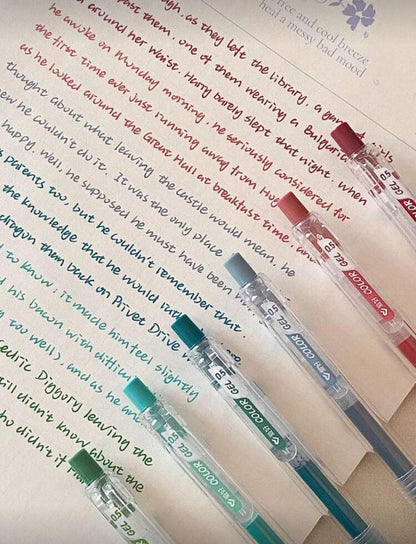 free and cool breeze
heal a messy bad mood
though, as they left the library, a gang of girls
past them, one of them wearing a Bulgaria
around her waist. Harry barely slept that night. When
he awoke on Monday morning, he seriously considered for
the first time ever just running away from Hog
as he looked around the Great Hall at breakfast time, and
thought about what leaving the castle would mean, he
knew he couldn't do it. It was the only place
happy. Well, he supposed he must have been
parents too, but he couldn't remember that.
the knowledge that he would rather
dragon than back on Privet Drive
to know; it made him feel slightly
his bacon with diffic
too well), and as he and
Cedric Diggory leaving the
still didn't know about the
who didn't
0.5 GEL COLOR
0.5 GEL COLOR
0.5 GEL COLOR
0.5 GEL COLOR
0.5 GEL COLOR
0.5 GEL